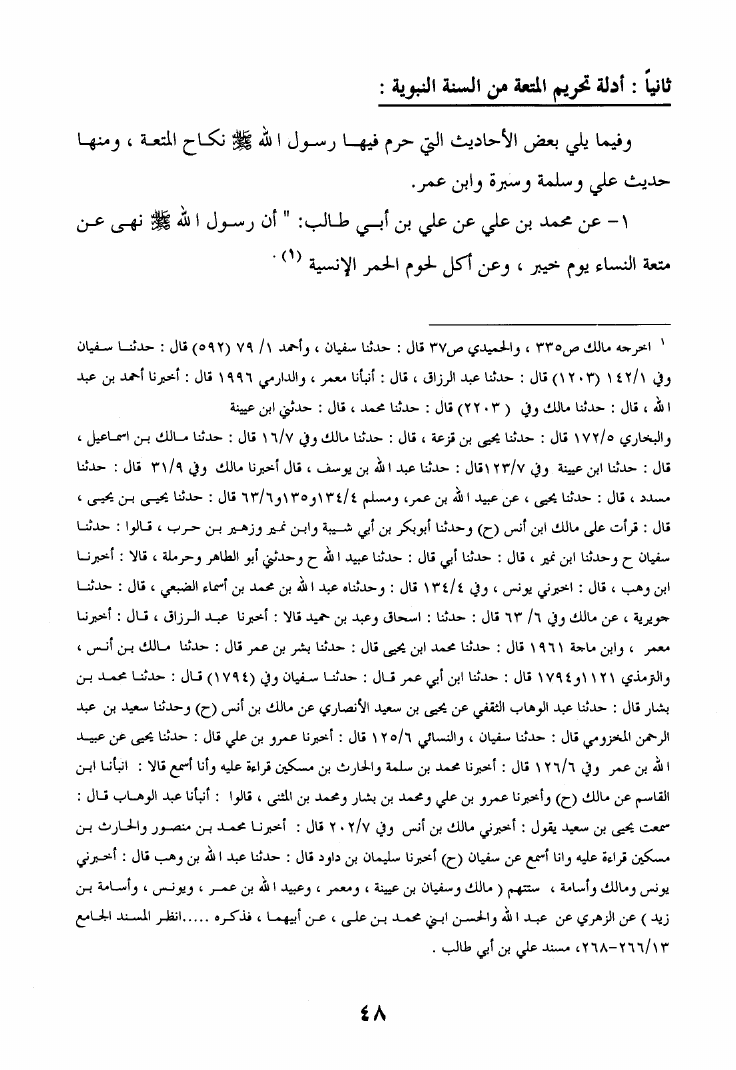 ثانياً : أدلة تحريم المتعة من السنة النبوية :
وفيما يلي بعض الأحاديث التي حرم فيها رسول الله ﷺ نكاح المتعة ، ومنها
حديث علي وسلمة وسبرة وابن عمر.
١- عن محمد بن علي عن علي بن أبي طالب: " أن رسول الله ﷺ نهى عن
متعة النساء يوم خيبر ، وعن أكل لحوم الحمر الإنسية (١) .
١ اخرجه مالك ص٣٣٥ ، والحميدي ص٣٧ قال : حدثنا سفيان ، وأحمد ١/ ٧٩ (٥٩٢) قال : حدثنا سفيان
وفي ١٤٢/١ (١٢٠٣) قال : حدثنا عبد الرزاق ، قال : أنبأنا معمر ، والدارمي ١٩٩٦ قال : أخبرنا أحمد بن عبد
الله ، قال : حدثنا مالك وفي ( ٢٢٠٣) قال : حدثنا محمد ، قال : حدثني ابن عيينة
والبخاري ١٧٢/٥ قال : حدثنا يحيى بن قزعة ، قال : حدثنا مالك وفي ١٦/٧ قال : حدثنا مالك بن اسماعيل ،
قال : حدثنا ابن عيينة وفي ١٢٣/٧قال : حدثنا عبد الله بن يوسف ، قال أخبرنا مالك وفي ٣١/٩ قال : حدثنا
مسدد ، قال : حدثنا يحيى ، عن عبيد الله بن عمر، ومسلم ١٣٤/٤و١٣٥و٦٣/٦ قال : حدثنا يحيى بن يحيى ،
قال : قرأت على مالك ابن أنس (ح) وحدثنا أبوبكر بن أبي شيبة وابن نمير وزهير بن حرب ، قالوا : حدثنا
سفيان ح وحدثنا ابن نمير ، قال : حدثنا أبي قال : حدثنا عبيد الله ح وحدثني أبو الطاهر وحرملة ، قالا : أخبرنا
ابن وهب ، قال : اخبرني يونس ، وفي ١٣٤/٤ قال : وحدثناه عبد الله بن محمد بن أسماء الضبعي ، قال : حدثنا
جويرية ، عن مالك وفي ٦/ ٦٣ قال : حدثنا : اسحاق وعبد بن حميد قالا : أخبرنا عبد الرزاق ، قال : أخبرنا
معمر ، وابن ماجة ١٩٦١ قال : حدثنا محمد ابن يحيى قال : حدثنا بشر بن عمر قال : حدثنا مالك بن أنس ،
والترمذي ١١٢١و١٧٩٤ قال : حدثنا ابن أبي عمر قال : حدثنا سفيان وفي (١٧٩٤) قال : حدثنا محمد بن
بشار قال : حدثنا عبد الوهاب الثقفي عن يحيى بن سعيد الأنصاري عن مالك بن أنس (ح) وحدثنا سعيد بن عبد
الرحمن المخزومي قال : حدثنا سفيان ، والنسائي ١٢٥/٦ قال : أخبرنا عمرو بن علي قال : حدثنا يحيى عن عبيد
الله بن عمر وفي ١٢٦/٦ قال : أخبرنا محمد بن سلمة والحارث بن مسكين قراءة عليه وأنا أسمع قالا : انبأنا ابن
القاسم عن مالك (ح) وأخبرنا عمرو بن علي ومحمد بن بشار ومحمد بن المثنى ، قالوا : أنبأنا عبد الوهاب قال :
سمعت يحيى بن سعيد يقول : أخبرني مالك بن أنس وفي ٢٠٢/٧ قال : أخبرنا محمد بن منصور والحارث بن
مسكين قراءة عليه وانا أسمع عن سفيان (ح) أخبرنا سليمان بن داود قال : حدثنا عبد الله بن وهب قال : أخبرني
يونس ومالك وأسامة ، ستتهم ( مالك وسفيان بن عيينة ، ومعمر ، وعبيد الله بن عمر ، ويونس ، وأسامة بن
زيد ) عن الزهري عن عبد الله والحسن ابني محمد بن على ، عن أبيهما ، فذكره .....انظر المسند الجامع
٢٦٦/١٣-٢٦٨، مسند علي بن أبي طالب .
٤٨